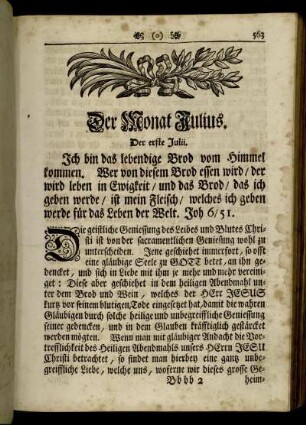 (o) 563
Der Monat Julius.
Der erste Julii.
Ich bin das lebendige Brod vom Himmel
kommen. Wer von diesem Brod essen wird/ der
wird leben in Ewigkeit/ und das Brod/ das ich
geben werde/ ist mein Fleisch/ welches ich geben
werde für das Leben der Welt. Joh 6/51.
Die geistliche Geniessung des Leibes und Blutes Chri-
sti ist von der sacramentlichen Geniessung wohl zu
unterscheiden. Jene geschiehet immerfort, so offt
eine gläubige Seele zu GOTT betet, an ihn ge-
dencket, und sich in Liebe mit ihm je mehr und mehr vereini-
get: Diese aber geschiehet in dem heiligen Abendmahl un-
ter dem Brod und Wein, welches der HErr JESUS
kurtz vor seinem blutigen Tode eingesetzet hat, damit die wahren
Gläubigen durch solche heilige und unbegreiffliche Geniessung
seiner gedencken, und in dem Glauben kräfftiglich gestärcket
werden mögten. Wenn man mit gläubiger Andacht die Vor-
trefflichkeit des Heiligen Abendmahls unsers HErrn JESU
Christi betrachtet, so findet man hierbey eine gantz unbe-
greiffliche Liebe, welche uns, woferne wir dieses grosse Ge-
Bbbb 2 heim-